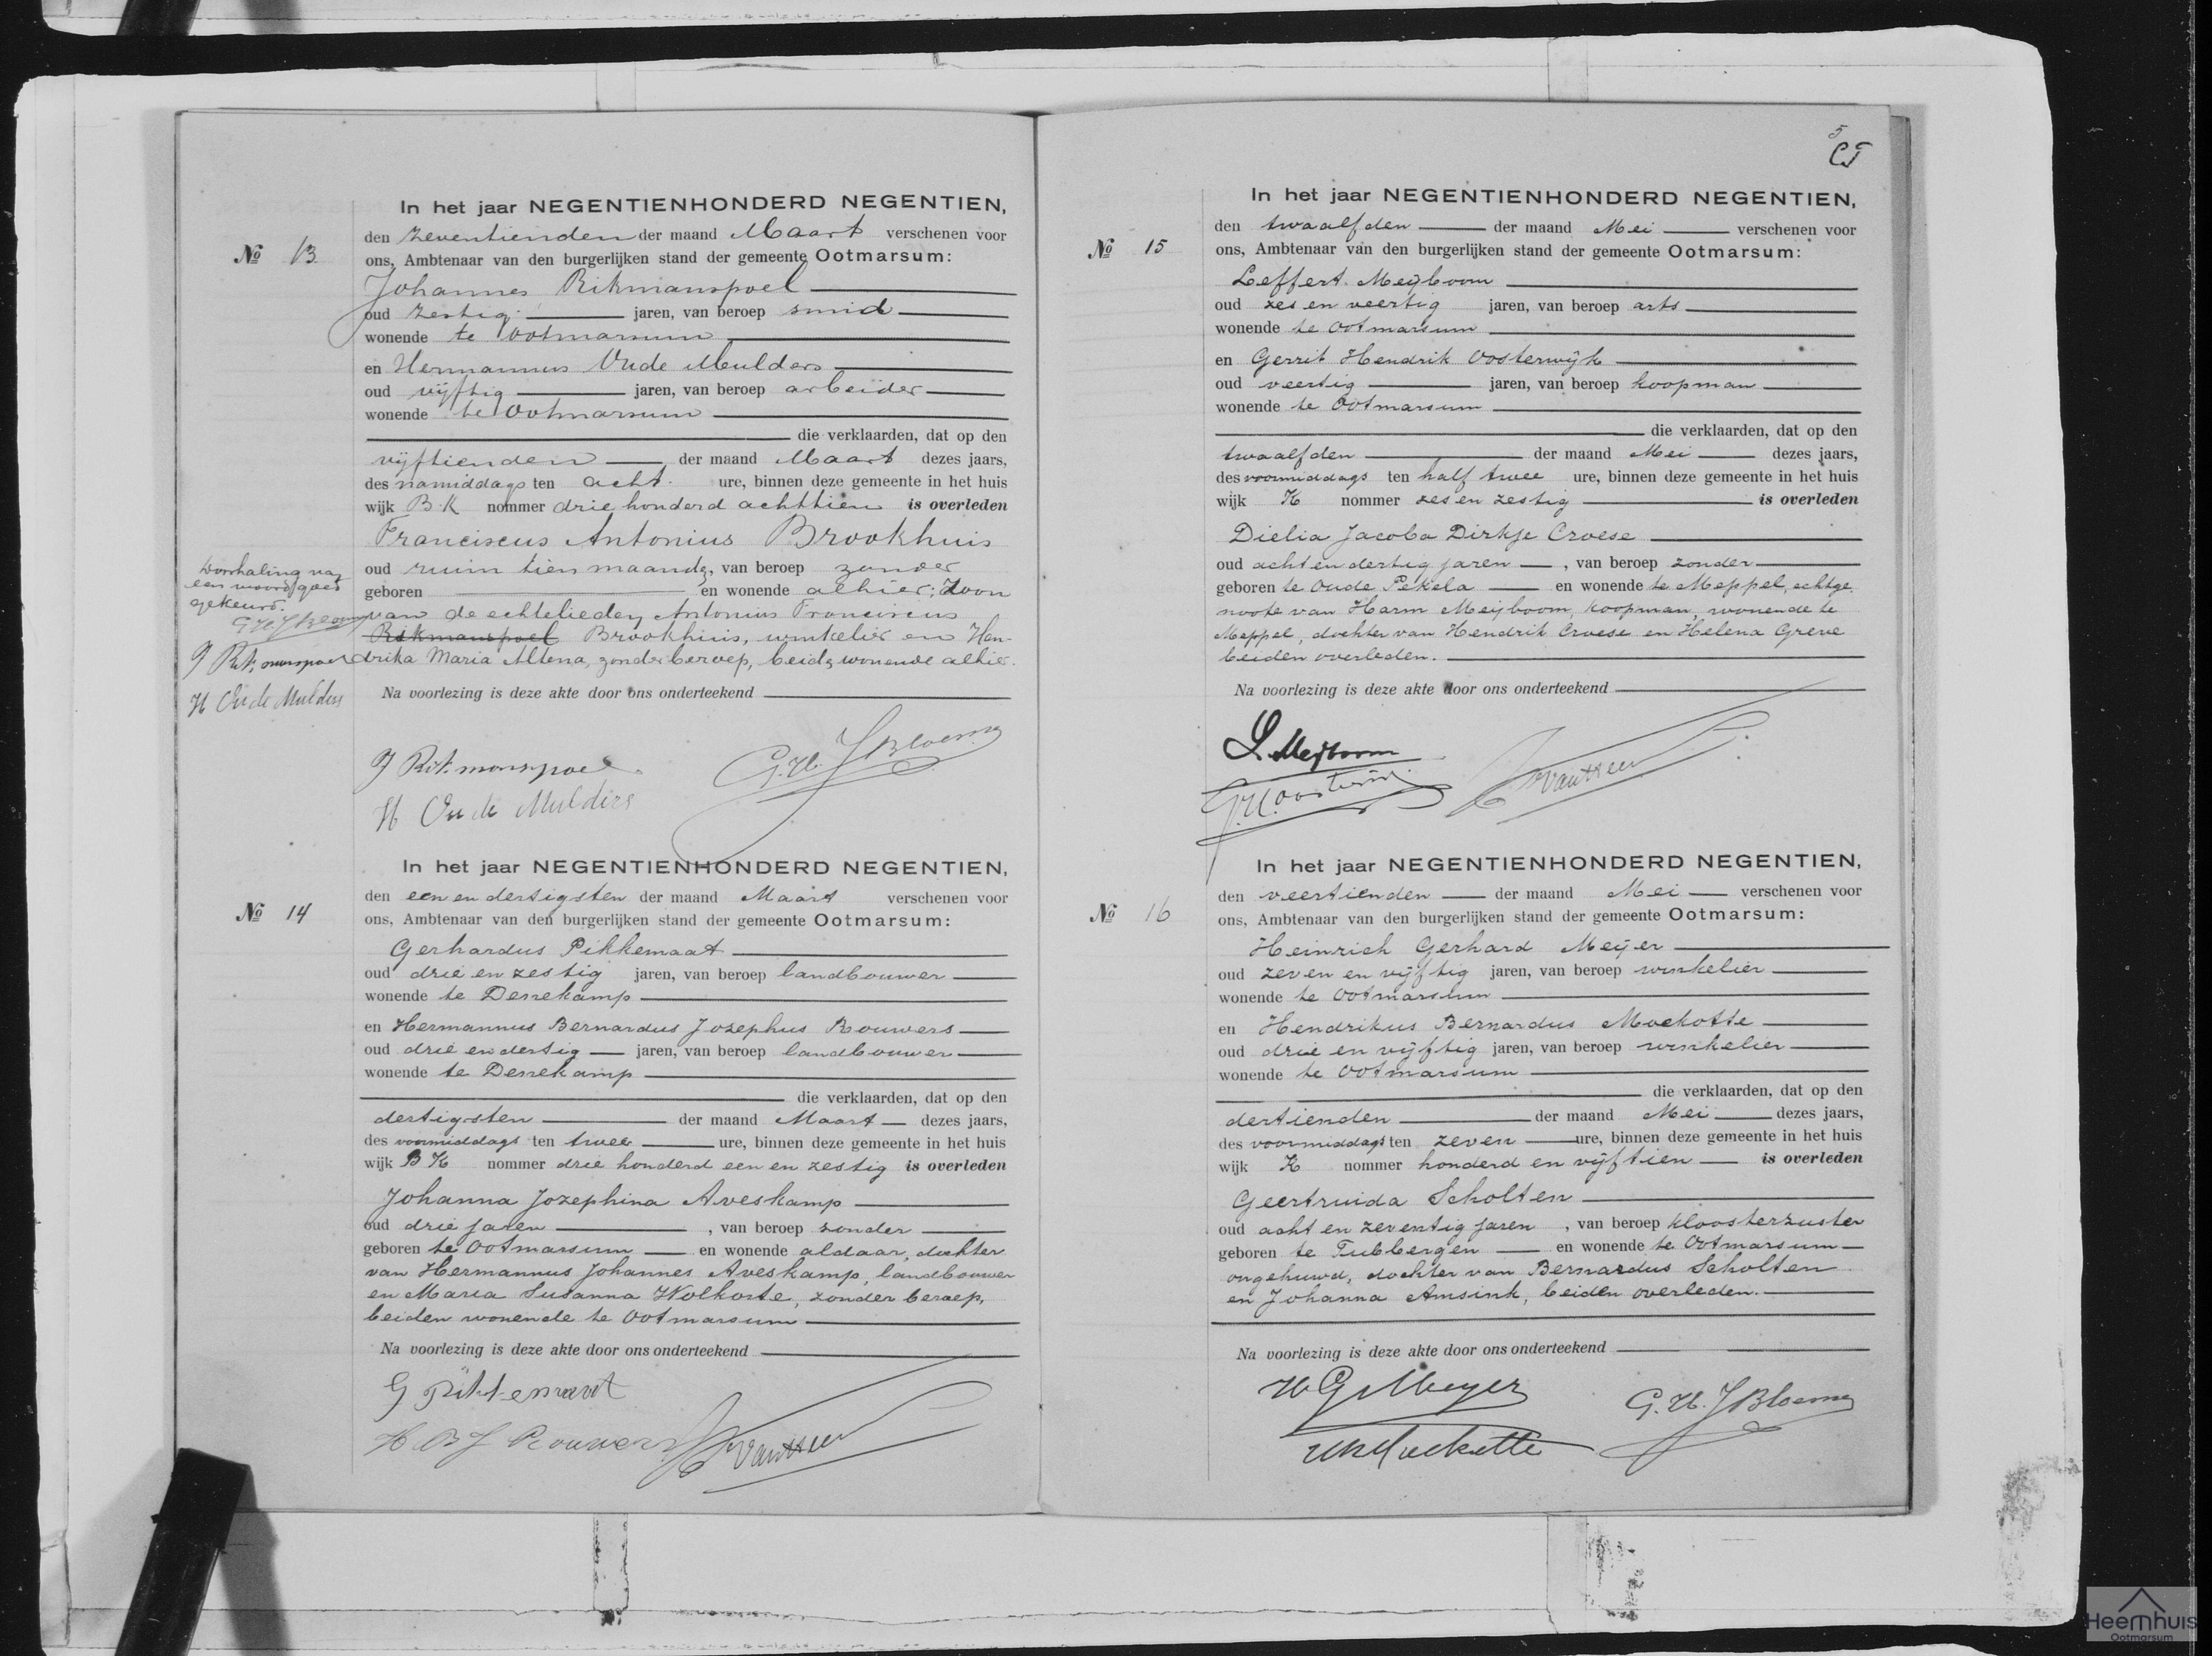 In het jaar NEGENTIENHONDERD NEGENTIEN,
den zeventienden der maand Maart verschenen voor
No 13
ons, Ambtenaar van den burgerlijken stand der gemeente Ootmarsum:
Johannes Rikmanspoel
oud zestig jaren, van beroep smid
wonende te Ootmarsum
en Hermannus Oude Mulders
oud vijftig jaren, van beroep arbeider
wonende te Ootmarsum
die verklaarden, dat op den
vijftienden der maand Maart dezes jaars,
des namiddags ten acht ure, binnen deze gemeente in het huis
wijk B.K nommer driehonderd achttien is overleden
Franciscus Antonius Brookhuis
oud ruim tien maanden, van beroep zonder
geboren en wonende alhier; zoon
van de echtelieden Antonius Franciscus
Rikmanspoel Brookhuis, winkelier en Hen-
drika Maria Altena, zonder beroep, beide wonende alhier.
Doorhaling van
een woord goed
gekeurd.
G.H.J Bloemen
J Rikmanspoel
H Oude Mulders
Na voorlezing is deze akte door ons onderteekend
J Rikmanspoel
G.H.J Bloemen
H Oude Mulders
In het jaar NEGENTIENHONDERD NEGENTIEN,
den een en dertigsten der maand Maart verschenen voor
No 14
ons, Ambtenaar van den burgerlijken stand der gemeente Ootmarsum:
Gerhardus Pikkemaat
oud drie en zestig jaren, van beroep landbouwer
wonende te Denekamp
en Hermannus Bernardus Jozephus Rouwers
oud drie en dertig jaren, van beroep landbouwer
wonende te Denekamp
die verklaarden, dat op den
dertigsten der maand Maart dezes jaars,
des voormiddags ten twee ure, binnen deze gemeente in het huis
wijk B K nommer drie honderd een en zestig is overleden
Johanna Jozephina Aveskamp
oud drie jaren, van beroep zonder
geboren te Ootmarsum en wonende aldaar, dochter
van Hermannus Johannes Aveskamp, landbouwer
en Maria Susanna Wolkorte, zonder beroep,
beiden wonende te Ootmarsum
Na voorlezing is deze akte door ons onderteekend
G Pikkemaat
H B J Rouwers
5
In het jaar NEGENTIENHONDERD NEGENTIEN,
den twaalfden der maand Mei verschenen voor
No 15
ons, Ambtenaar van den burgerlijken stand der gemeente Ootmarsum:
Leffert Meijboom
oud zes en veertig jaren, van beroep arts
wonende te Ootmarsum
en Gerrit Hendrik Oosterwijk
oud veertig jaren, van beroep koopman
wonende te Ootmarsum
die verklaarden, dat op den
twaalfden der maand Mei dezes jaars,
des voormiddags ten half twee ure, binnen deze gemeente in het huis
wijk K nommer zes en zestig is overleden
Dielia Jacoba Dirkje Croese
oud acht en dertig jaren, van beroep zonder
geboren te Oude Pekela en wonende te Meppel, echtge
noote van Harm Meijboom, koopman, wonende te
Meppel, dochter van Hendrik Croese en Helena Greve
beiden overleden.
Na voorlezing is deze akte door ons onderteekend
L. Meijboom
In het jaar NEGENTIENHONDERD NEGENTIEN,
den veertienden der maand Mei verschenen voor
No 16
ons, Ambtenaar van den burgerlijken stand der gemeente Ootmarsum:
Heinrich Gerhard Meijer
oud zeven en vijftig jaren, van beroep winkelier
wonende te Ootmarsum
en Hendrikus Bernardus Mockotte
oud drie en vijftig jaren, van beroep winkelier
wonende te Ootmarsum
die verklaarden, dat op den
dertienden der maand Mei dezes jaars,
des voormiddags ten zeven ure, binnen deze gemeente in het huis
wijk K nommer honderd en vijftien is overleden
Geertruida Scholten
oud acht en zeventig jaren, van beroep kloosterzuster
geboren te Tubbergen en wonende te Ootmarsum
ongehuwd, dochter van Bernardus Scholten
en Johanna Amsink, beiden overleden.
Na voorlezing is deze akte door ons onderteekend
H G Meyer
G.H.J Bloemen
Heemhuis
Ootmarsum